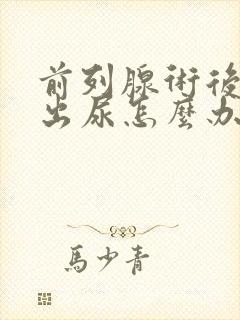 前列腺術後
出尿怎麼办
馬少青